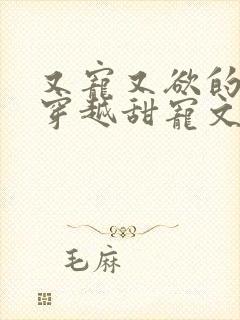 又宠又欲的
穿越甜宠文
毛麻